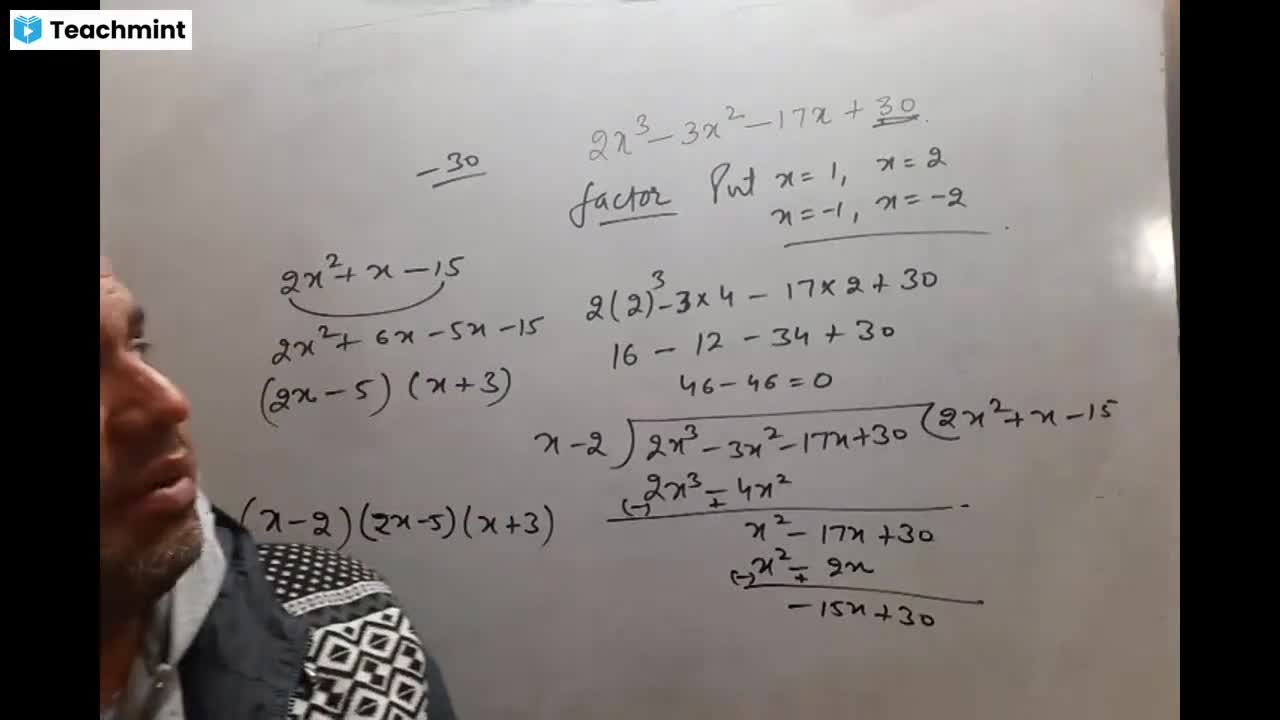 Teachmint
2x³ - 3x² - 17x + 30.
-30
factor Put x = 1, x = 2
x = -1, x = -2
2x² + x - 15
2x² + 6x - 5x - 15
(2x - 5) (x + 3)
(x - 2)(2x - 5)(x + 3)
2(2)³ - 3 × 4 - 17 × 2 + 30
16 - 12 - 34 + 30
46 - 46 = 0
x - 2 ) 2x³ - 3x² - 17x + 30 ( 2x² + x - 15
2x³ - 4x²
(-) +
x² - 17x + 30
x² - 2x
(-) +
-15x + 30